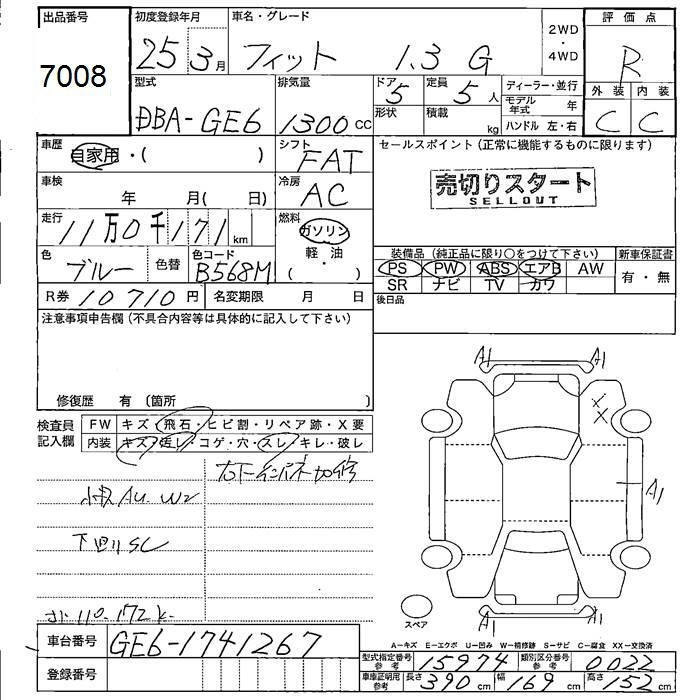 出品番号
7008
初度登録年月
25 3月
車名・グレード
フィット 1.3 G
2WD
・
4WD
評価点
R
外装 内装
C C
型式
DBA-GE6
排気量
1300cc
ドア
5
定員
5人
形状
積載
kg
ディーラー・並行
モデル年式 年
ハンドル 左・右
車歴
自家用・( )
シフト
FAT
セールスポイント(正常に機能するものに限ります)
売切りスタート
SELLOUT
車検
年 月( 日)
冷房
AC
走行
11万0千171km
燃料
ガソリン
軽 油
( ・ )
色
ブルー
色替
色コード
B568M
装備品(純正品に限り○をつけて下さい)
PS PW ABS エアB AW
SR ナビ TV カワ
新車保証書
有・無
R券 10710円
名変期限 月 日
後日品
注意事項申告欄(不具合内容等は具体的に記入して下さい)
修復歴 有(箇所 )
検査員
記入欄
FW キズ・飛石・ヒビ割・リペア跡・X要
内装 キズ・汚レ・コゲ・穴・スレ・キレ・破レ
小キズ AU W2
下回りSC
110.172K
A1 A1
X
X
A1
A1 A1
スペア
A-キズ E-エクボ U-凹み W-補修跡 S-サビ C-腐食 XX-交換済
車台番号 GE6-1741267
登録番号
型式指定番号
参考
15974
類別区分番号
参考
0022
車庫証明用
参考
長さ 390cm 幅 169cm 高さ 152cm